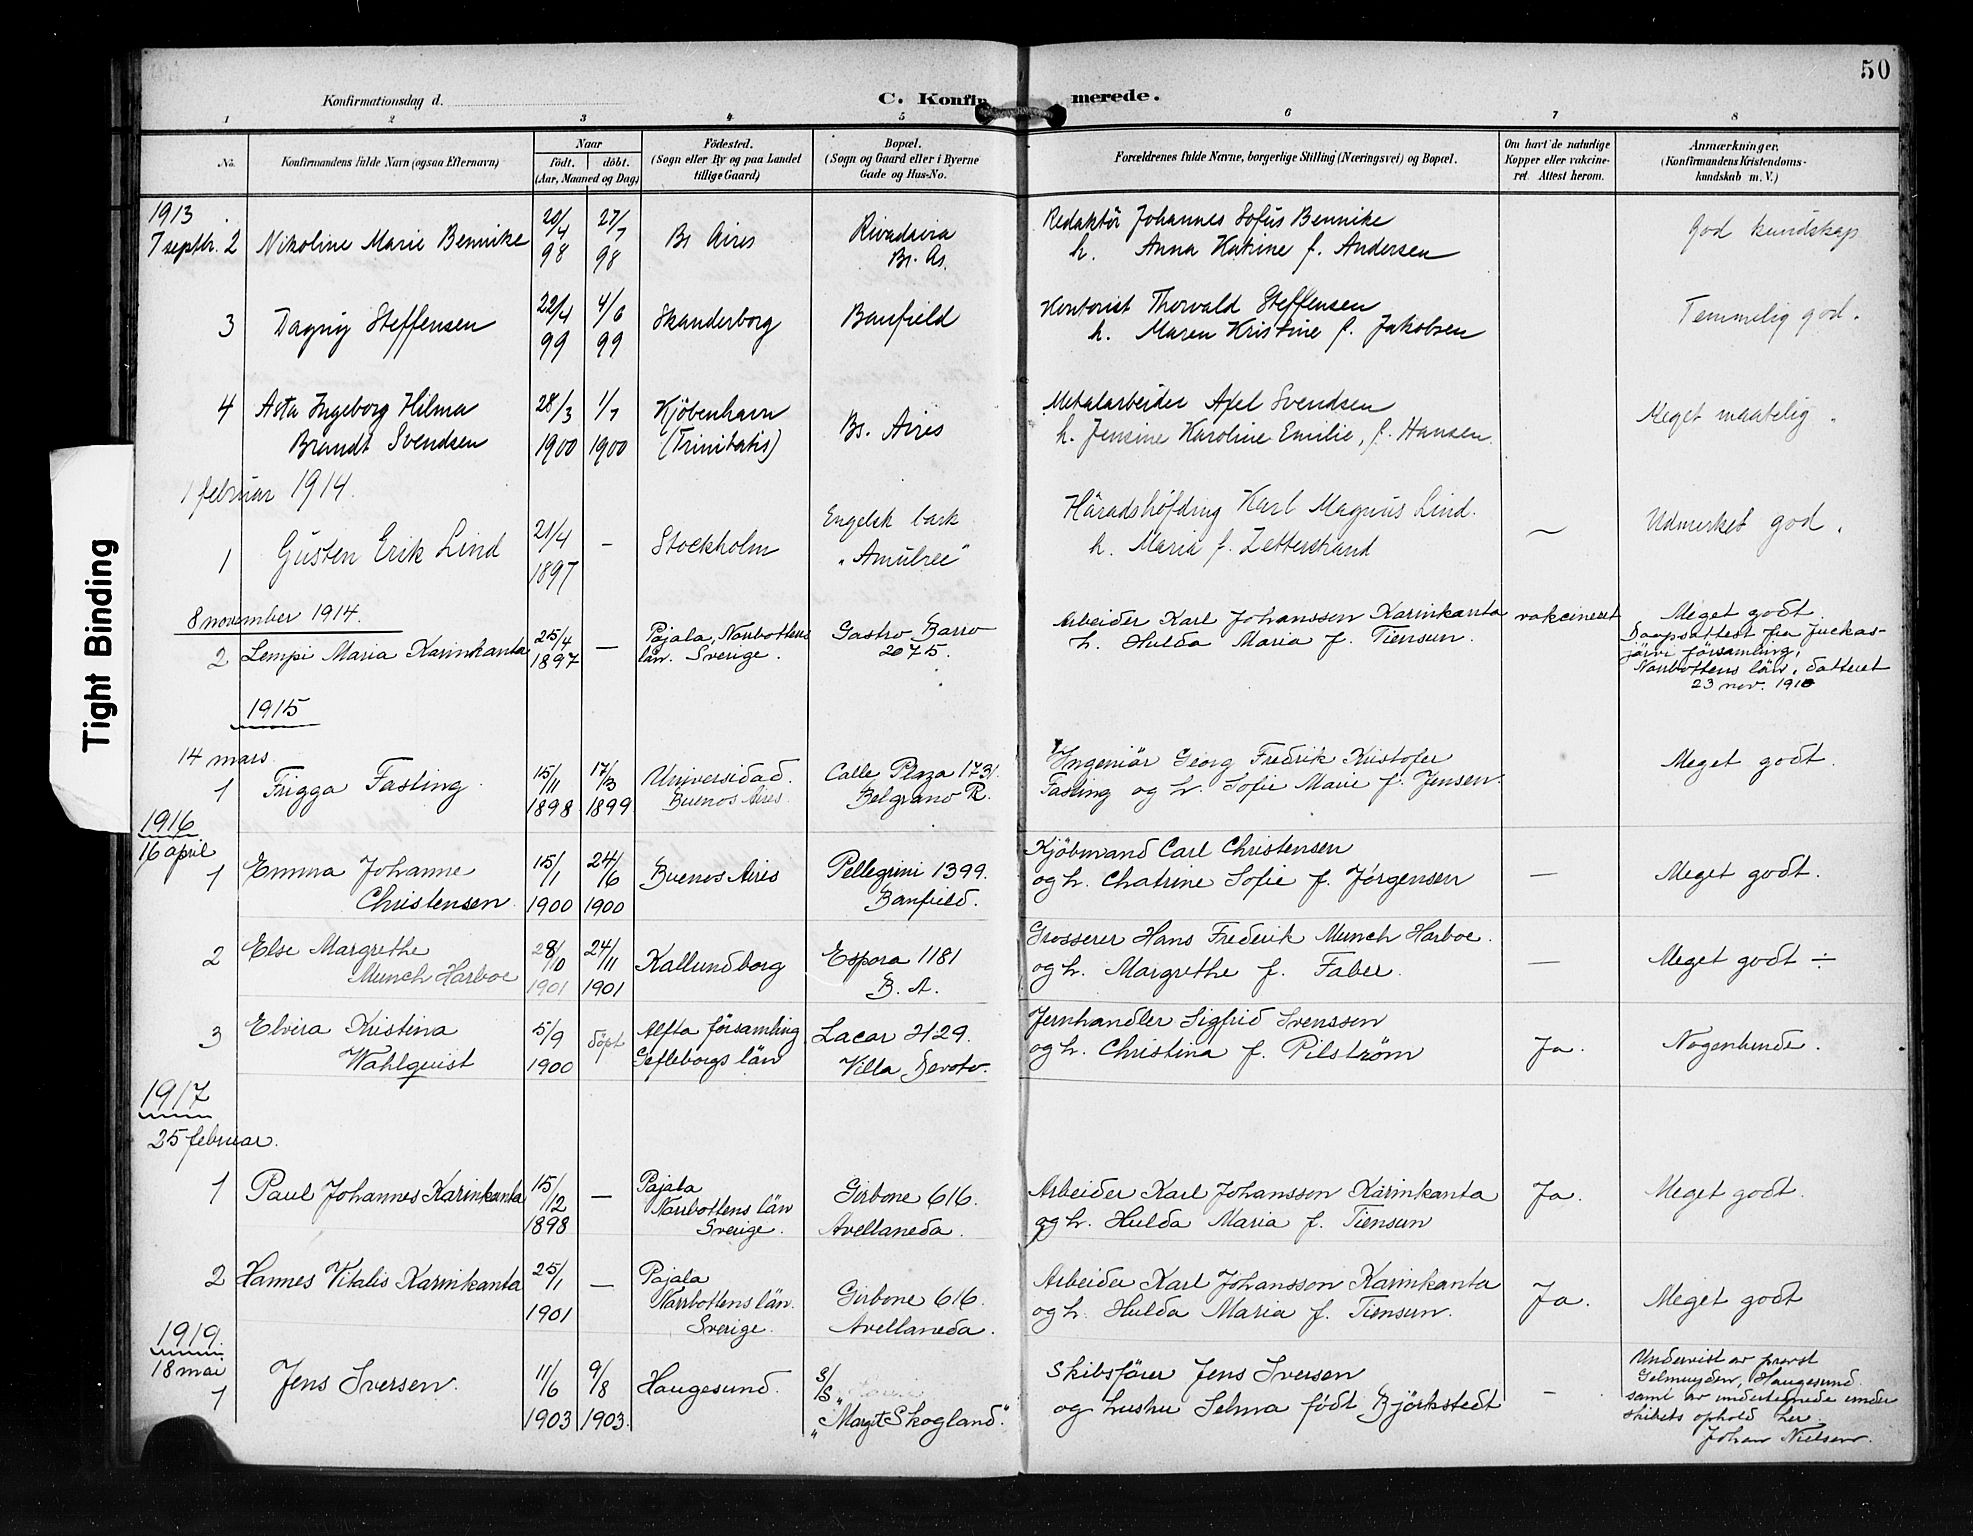 50
Konfirmationsdag d.
C. Konfir merede.
1 2 3 4 5 6 7 8
No.
Konfirmandens fulde Navn (ogsaa Efternavn)
Naar
født. døbt.
(Aar, Maaned og Dag)
Fødested.
(Sogn eller By og paa Landet
tillige Gaard)
Bopæl.
(Sogn og Gaard eller i Byerne
Gade og Hus-No.
Forældrenes fulde Navne, borgerlige Stilling (Næringsvei) og Bopæl.
Om havt de naturlige
Kopper eller vakcine-
ret. Attest herom.
Anmærkninger.
(Konfirmandens Kristendoms-
kundskab m. V.)
1913
7 septbr. 2 Nikoline Marie Bennike 20/4 98 27/7 98 Bs Aires Rivadavia
Bs. As.
Redaktör Johannes Sofus Bennike
h. Anna Katrine f. Andersen
God kundskap
3 Dagny Steffensen 22/4 99 4/6 99 Skanderborg Banfield
Kontorist Thorvald Steffensen
h. Maren Kristine f. Jakobsen
Temmelig god.
4 Asta Ingeborg Hilma
Brandt Svendsen
28/3 1900 1/7 1900 Kjöbenhavn
(Trinitatis)
Bs. Aires
Metalarbeider Axel Svendsen
h. Jensine Karoline Emilie, f. Hansen
Meget maatelig.
1 februar 1914.
1 Gusten Erik Lind 21/4 1897 — Stockholm Engelsk bark
"Amulree"
Häradshöfding Karl Magnus Lind.
h. Maria f. Zetterstrand
—
Udmerket god.
8 november 1914.
2 Lempi Maria Karinkanta 25/4 1897 — Pajala, Norrbottens
län. Sverige.
Castro Barro
2075.
Arbeider Karl Johansson Karinkanta
h. Hulda Maria f. Tiensuu.
vakcineret
Meget godt.
Daapsattest fra Juckas-
järvi församling,
Norrbottens län, datteret
23 nov. 1910
1915
14 mars
1 Frigga Fasting. 15/11 1898 17/3 1899 Universidad.
Buenos Aires.
Calle Plaza 1731.
Belgrano R.
Ingeniör Georg Fredrik Kristofer
Fasting og h. Sofie Marie f. Jensen.
Meget godt.
1916
16 april
1 Emma Johanne
Christensen.
15/1 1900 24/6 1900 Buenos Aires Pellegrini 1399.
Banfield.
Kjöbmand Carl Christensen
og h. Chatrine Sofie f. Jørgensen
—
Meget godt.
2 Else Margrethe
Munch Harboe
28/10 1901 24/11 1901 Kallundborg Espora 1181
B. A.
Grosserer Hans Frederik Munch Harboe.
og h. Margrethe f. Faber.
—
Meget godt ÷
3 Elvira Kristina
Wahlquist
5/9 1900 döpt Alfta församling
Gefleborgs län
Lacar 4129.
Villa Devoto.
Jernhandler Sigfrid Svensson
og h. Christina f. Pilström
Ja.
Nogenlunde.
1917
25 februar.
1 Paul Johannes Karinkanta 15/12 1898 — Pajala
Norrbottens län
Sverige.
Girbone 616.
Avellaneda.
Arbeider Karl Johansson Karinkanta
og h. Hulda Maria f. Tiensuu
Ja.
Meget godt.
2 Hannes Vitalis Karinkanta 25/1 1901 — Pajala
Norrbottens län.
Sverige.
Girbone 616.
Avellaneda.
Arbeider Karl Johansson Karinkanta
og h. Hulda Maria f. Tiensuu.
Ja.
Meget godt
1919.
18 mai
1 Jens Iversen. 11/6 1903 9/8 1903. Haugesund. S/S
"Margit Skogland."
Skibsförer Jens Iversen
og hustru Selma født Björkstedt
-
Undervist av provst
Gelmuyden, Haugesund.
samt av undertegnede under
skibets ophold her.
Johan Nielsen.
Tight Binding